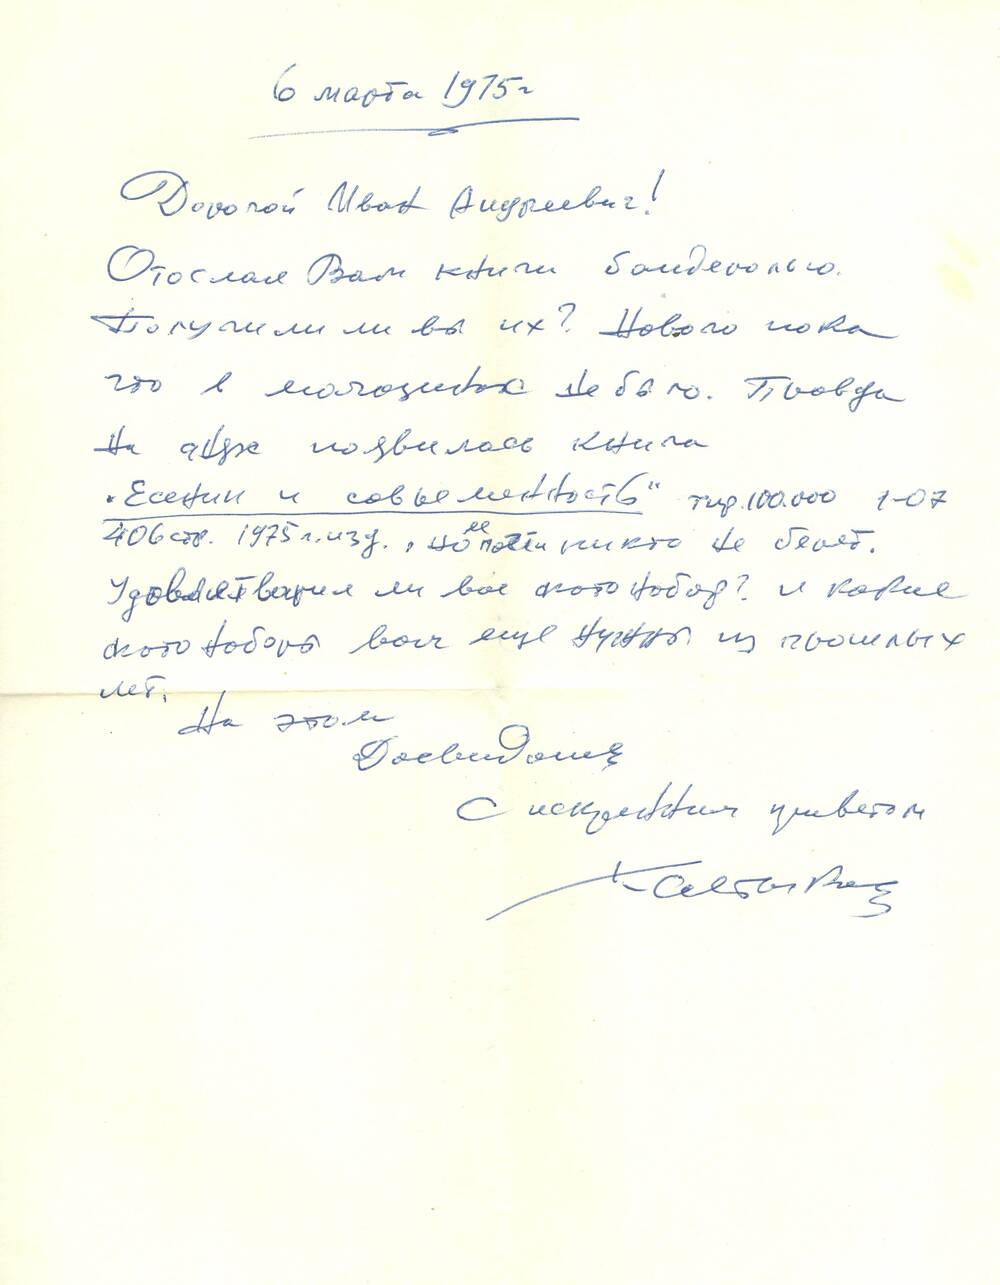 6 марта 1975г
Дорогой Иван Андреевич!
Отослал Вам книги бандеролью.
Получили ли вы их? Нового пока
что в магазинах не было. Правда
на днях появилась книга
„Есенин и современность" тир. 100.000 1-07
406 стр. 1975 г. изд., но ее почти никто не берет.
Удовлетварил ли вас фотонабор? и какие
фотонаборы вам еще нужны из прошлых
лет.
На этом
Досвидания
С искренним приветом